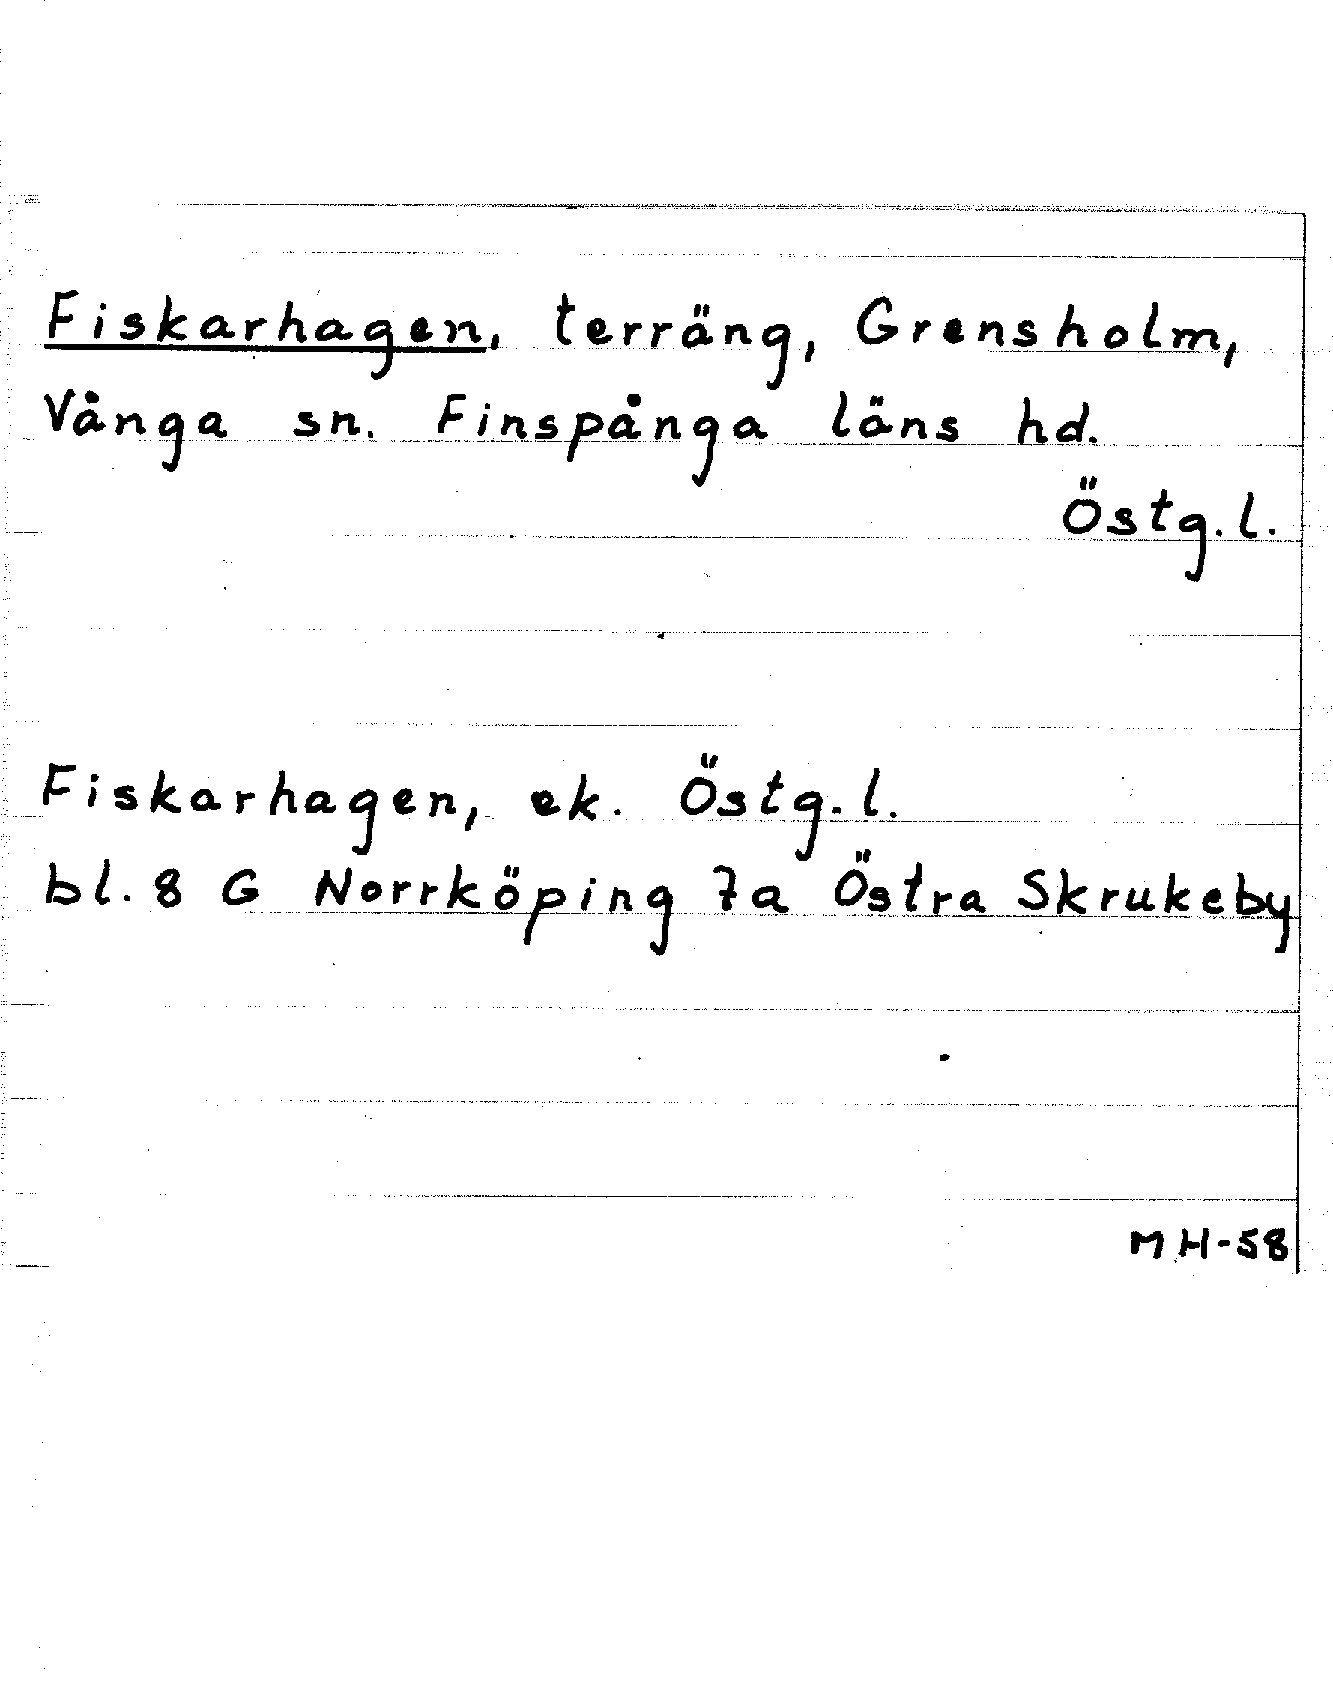 Fiskarhagen, terräng, Grensholm,
Vånga sn. Finspånga läns hd.
Östg.l.
Fiskarhagen, ek. Östg.l.
bl. 8 G Norrköping 7a Östra Skrukeby
MH-58